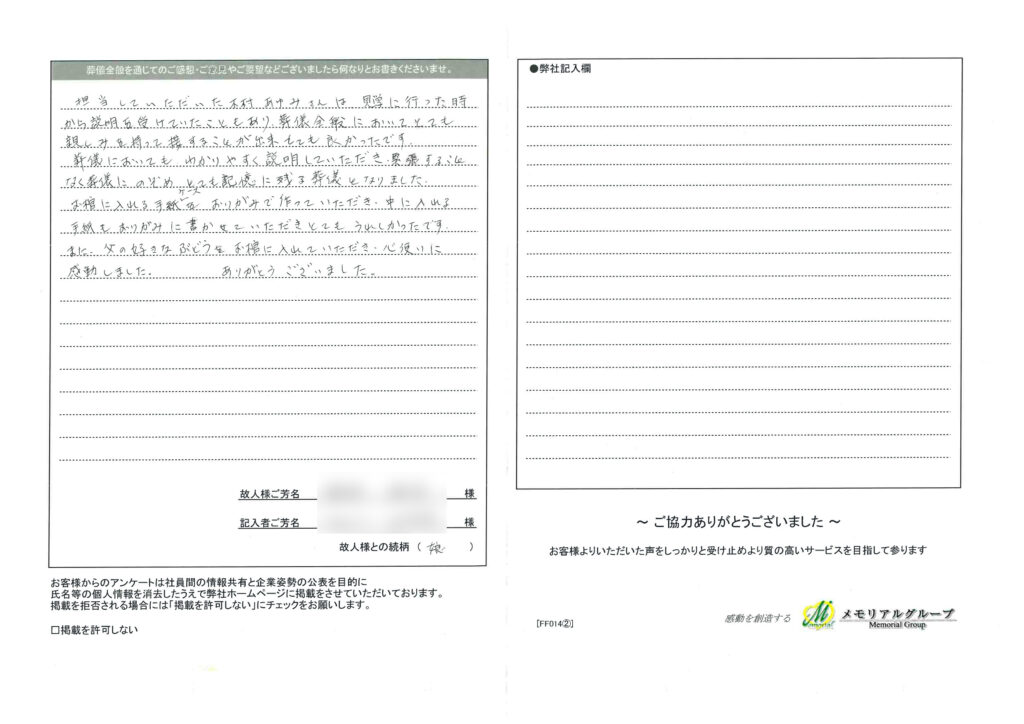 葬儀全般を通じてのご感想・ご意見やご要望などございましたら何なりとお書きくださいませ。
担当していただいた木村あゆみさんは 見学に行った時
から説明を受けていたこともあり、葬儀全般においてとても
親しみを持って接することが出来とても良かったです。
葬儀においても わかりやすく説明していただき、緊張すること
なく葬儀にのぞめ、とても記憶に残る葬儀となりました。
ケース
お棺に入れる手紙を おりがみで作っていただき、中に入れる
手紙もおりがみに書かせていただきとてもうれしかったです。
また、父の好きなぶどうをお棺に入れていただき、心使いに
感動しました。 ありがとうございました。
故人様ご芳名 様
記入者ご芳名 様
故人様との続柄 ( 娘 )
お客様からのアンケートは社員間の情報共有と企業姿勢の公表を目的に
氏名等の個人情報を消去したうえで弊社ホームページに掲載をさせていただいております。
掲載を拒否される場合には「掲載を許可しない」にチェックをお願いします。
□掲載を許可しない
●弊社記入欄
~ ご協力ありがとうございました ~
お客様よりいただいた声をしっかりと受け止めより質の高いサービスを目指して参ります
[FF014②]
感動を創造する
Memorial
メモリアルグループ
Memorial Group